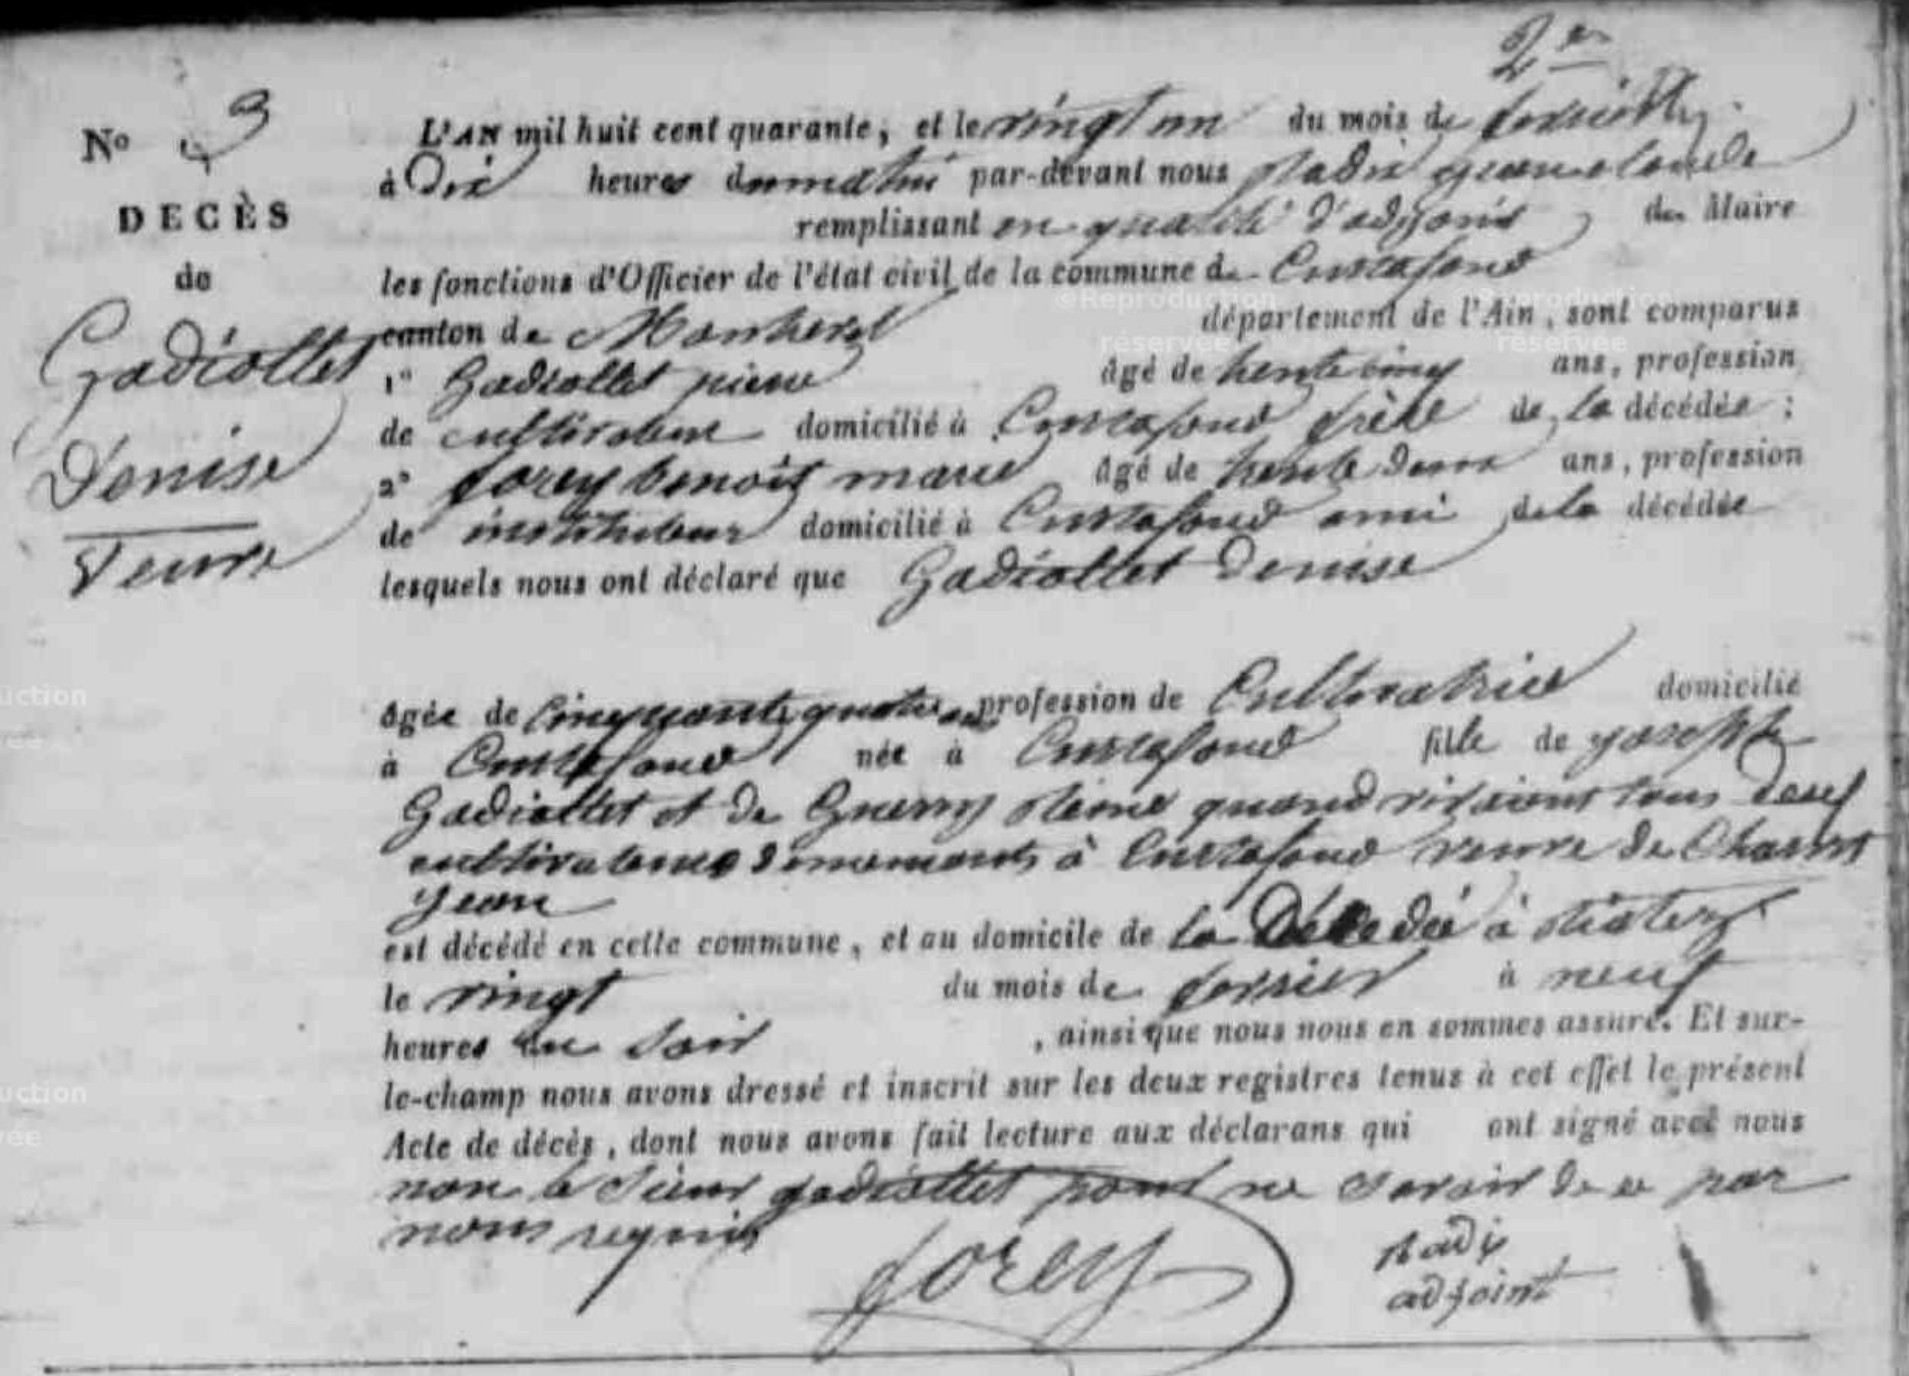 2
No 3
L'AN mil huit cent quarante, et le vingt un du mois de
DECÈS
à Dix heures du matin par-devant nous jean claude
remplissant en qualité d'adjoint de Maire
de
les fonctions d'Officier de l'état civil de la commune de Curtafond
canton de Montrevel département de l'Ain, sont comparus
Gadiollet
1° Gadiollet pierre âgé de trente cinq ans, profession
de cultivateur domicilié à Curtafond frère de la décédée;
Denise
2° forey benoit marie âgé de trente deux ans, profession
de instituteur domicilié à Curtafond ami de la décédée
veuve
lesquels nous ont déclaré que Gadiollet Denise
âgée de cinquante quatre ans profession de Cultivatrice domicilié
à Curtafond née à Curtafond fille de joseph
Gadiollet et de Guerry quand vivaient tous deux
cultivateurs demeurants à Curtafond veuve de
jean
est décédé en cette commune, et au domicile de la Décédée à
le vingt du mois de fevrier à neuf
heures du soir, ainsi que nous nous en sommes assuré. Et sur-
le-champ nous avons dressé et inscrit sur les deux registres tenus à cet effet le présent
Acte de décès, dont nous avons fait lecture aux déclarans qui ont signé avec nous
non le sieur gadiollet pour ne savoir de ce par
nous requis
forey
adjoint
©Reproduction
réservée
Reproduction
réservée
uction
vée
uction
vée